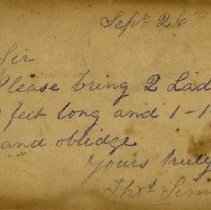 Sept 26th
Sir
Please bring 2 Lad
feet long and 1-1
and oblidge
Yours truly
Thos. Sim